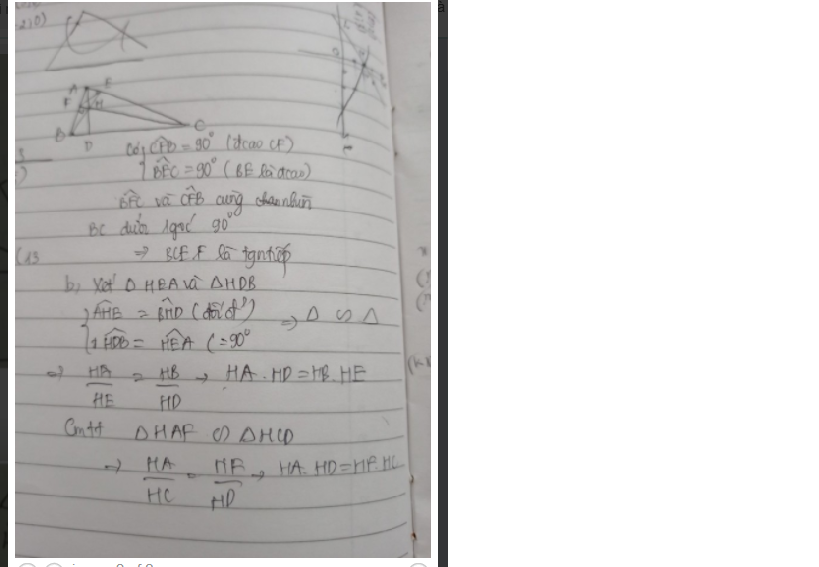 A E
F H
B D C
Có { CFB = 90° (đcao CF)
BEC = 90° (BE là đcao)
BEC và CFB cùng chắn
BC dưới 1 góc 90°
=> BCEF là tgntiếp
b, Xét Δ HEA và ΔHDB
{ AHE = BHD (đối đ²) => Δ ∽ Δ
HDB = HEA (= 90°
=> HA/HE = HB/HD → HA . HD = HB . HE
Cmtt ΔHAF ∽ ΔHCD
=> HA/HC = HF/HD → HA . HD = HF . HC